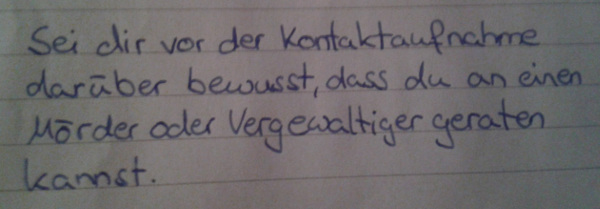 Sei dir vor der Kontaktaufnahme
darüber bewusst, dass du an einen
Mörder oder Vergewaltiger geraten
kannst.